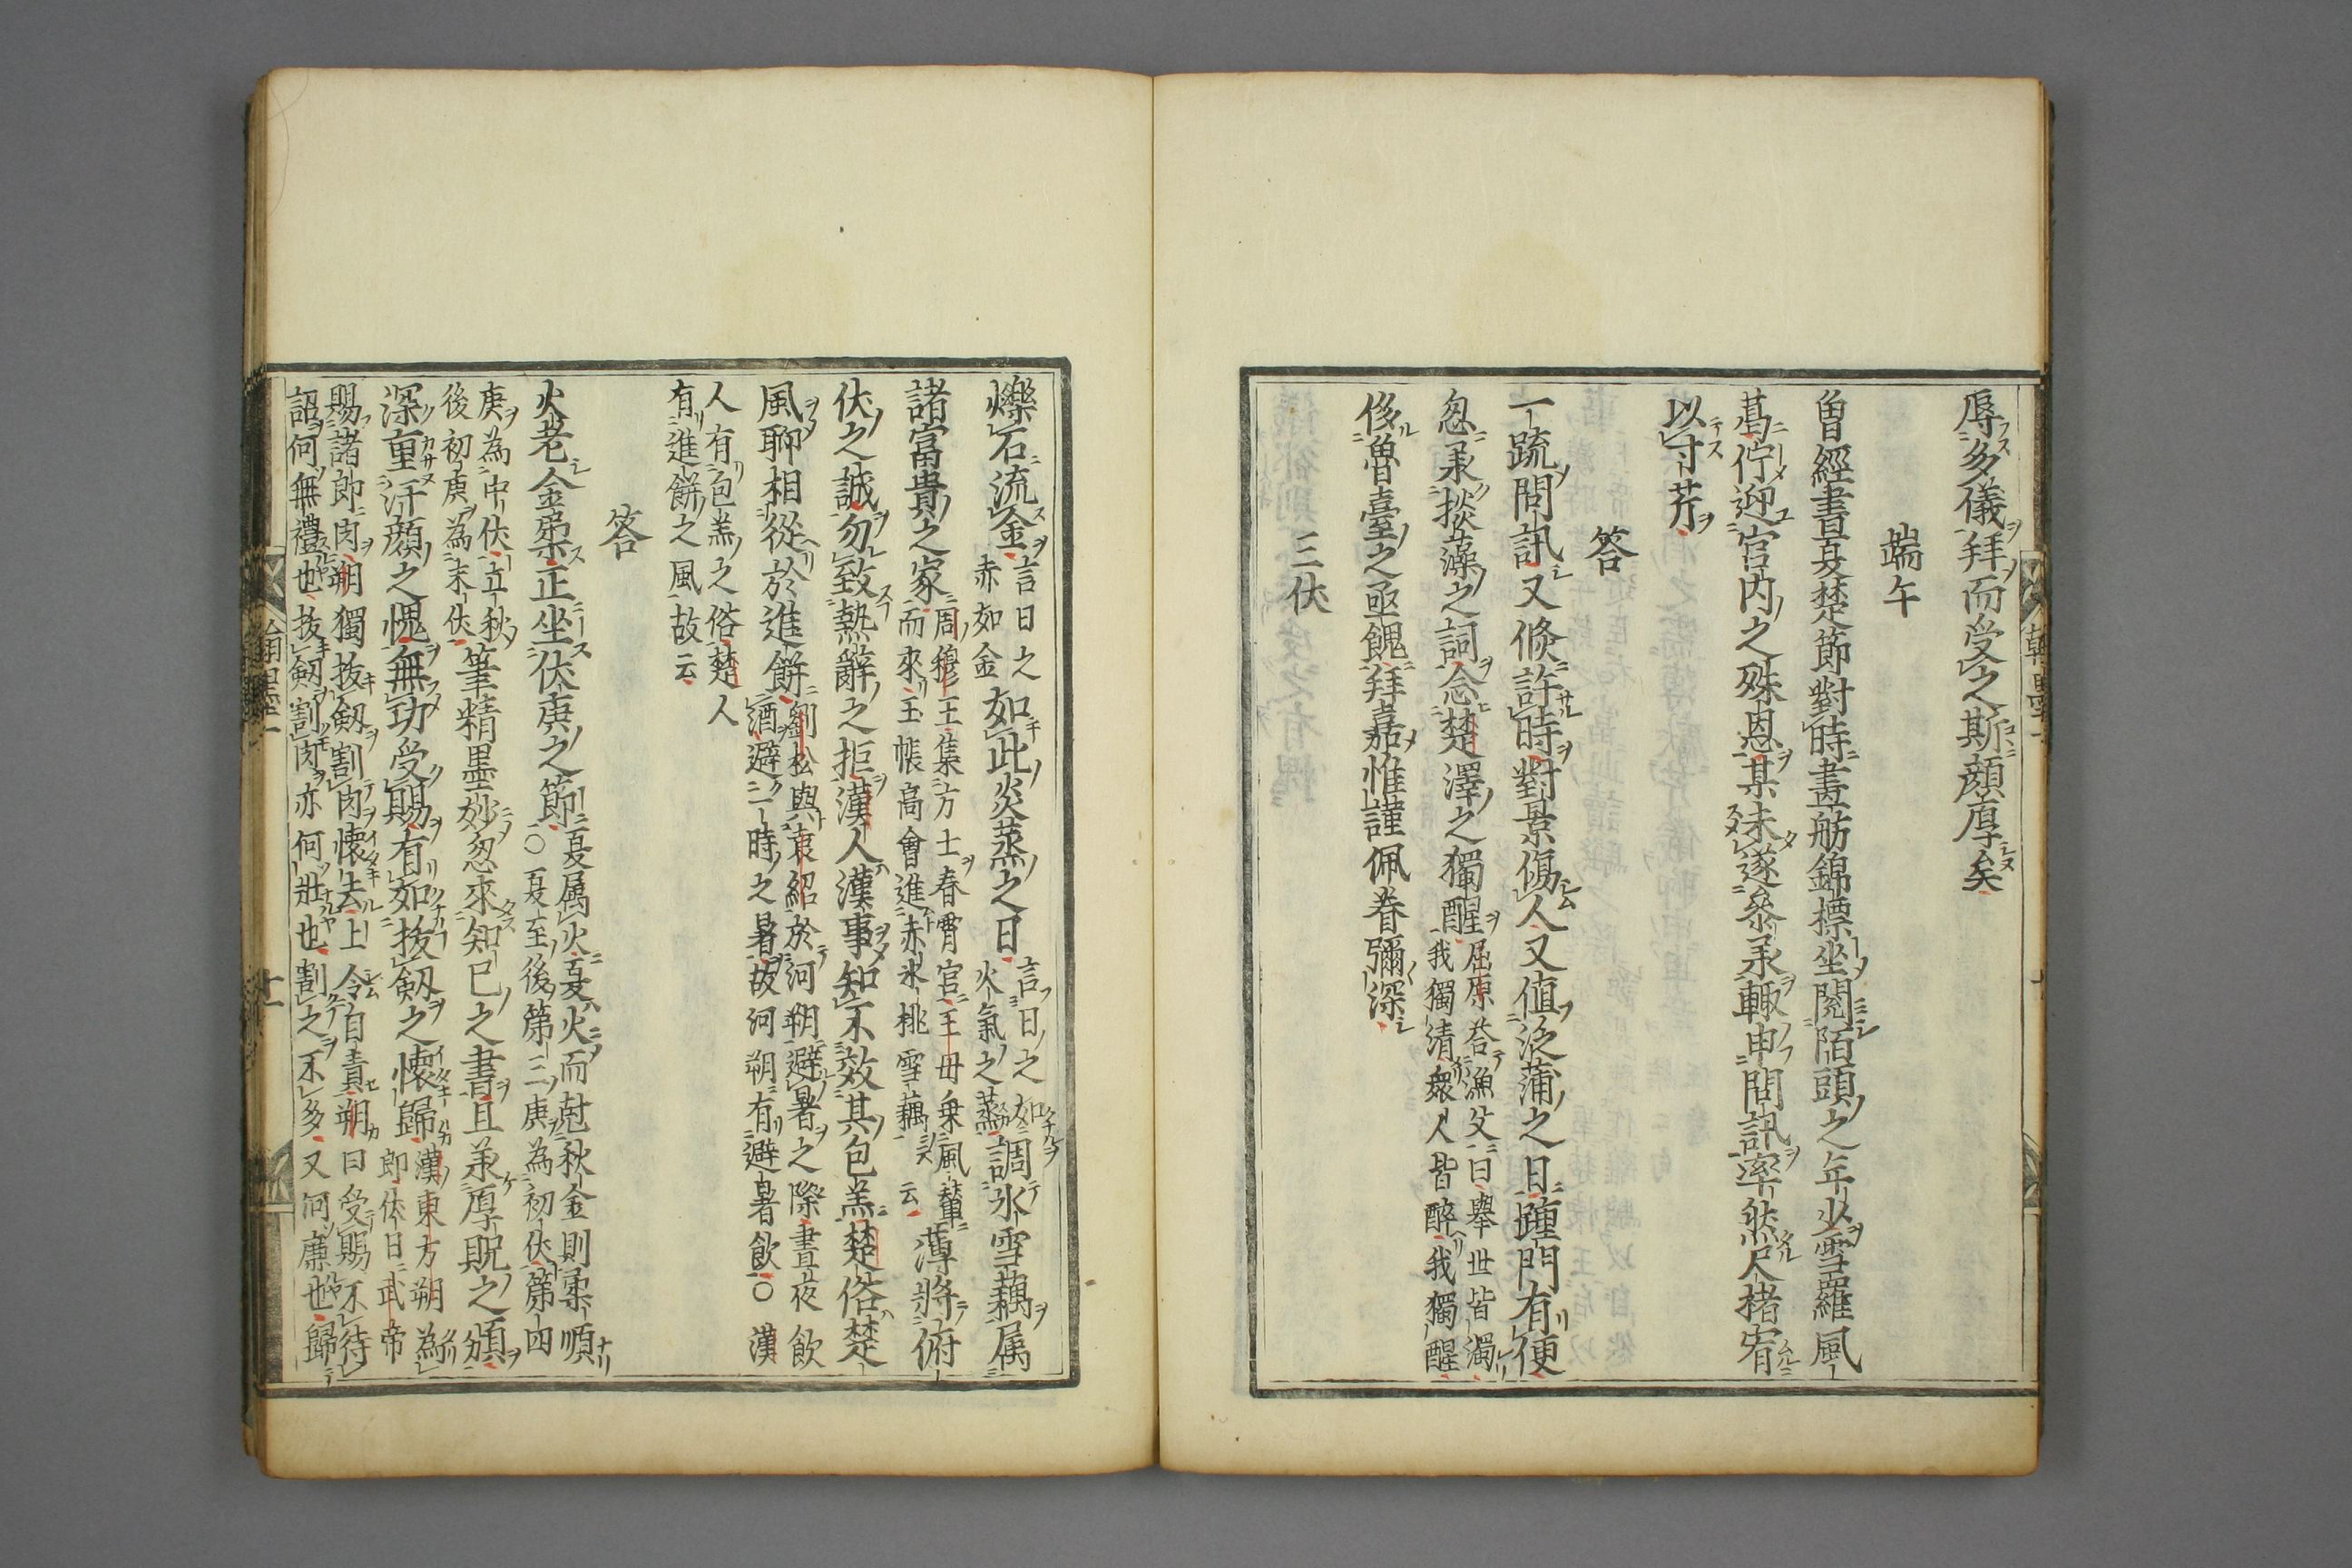 辱多儀拜而受之斯顔厚矣
端午
魯經書夏楚節對時畫舫錦標坐閱陌頭之年少雪羅風
葛佇迎官内之殊恩某未遂參承輙申問訊率然尺楮宥
以寸芹
答
一疏問訊又倐許時對景傷人又値泛蒲之日踵門有便
忽承掞藻之詞念楚澤之獨醒
屈原荅漁父曰擧世皆濁
我獨清衆人皆醉我獨醒
侈魯臺之亟餽拜嘉惟謹佩眷彌深
三伏
爍石流金
言日之
赤如金
如此炎蒸之日
言日之如
火氣之蒸
調氷雪藕属
諸富貴之家
周穆王集方士春霄宮王母乗風輦
而來玉帳高會進赤氷桃雪藕云
薄將俯
伏之誠勿致熱辭之拒漢人漢事知不效其包羔楚俗楚
風聊相從於進餅
劉松與袁紹於河朔避暑之際晝夜飲
酒避一時之暑故河朔有避暑飲○漢
人有包羔之俗楚人
有進餅之風故云
答
火老金柔正坐伏庚之節
夏属火夏火而尅秋金則柔順
○夏至後第三庚為初伏第四
庚為中伏立秋
後初庚為末伏
筆精墨妙忽來知已之書且承厚貺之頒
深重汗顔之愧無功受賜有如拔劔之懷歸
漢東方朔為
郎伏日武帝
賜諸郎肉朔獨拔劔割肉懷去上令自責朔曰受賜不待
詔何無禮也拔劔割肉亦何壯也割之不多又何廉也歸